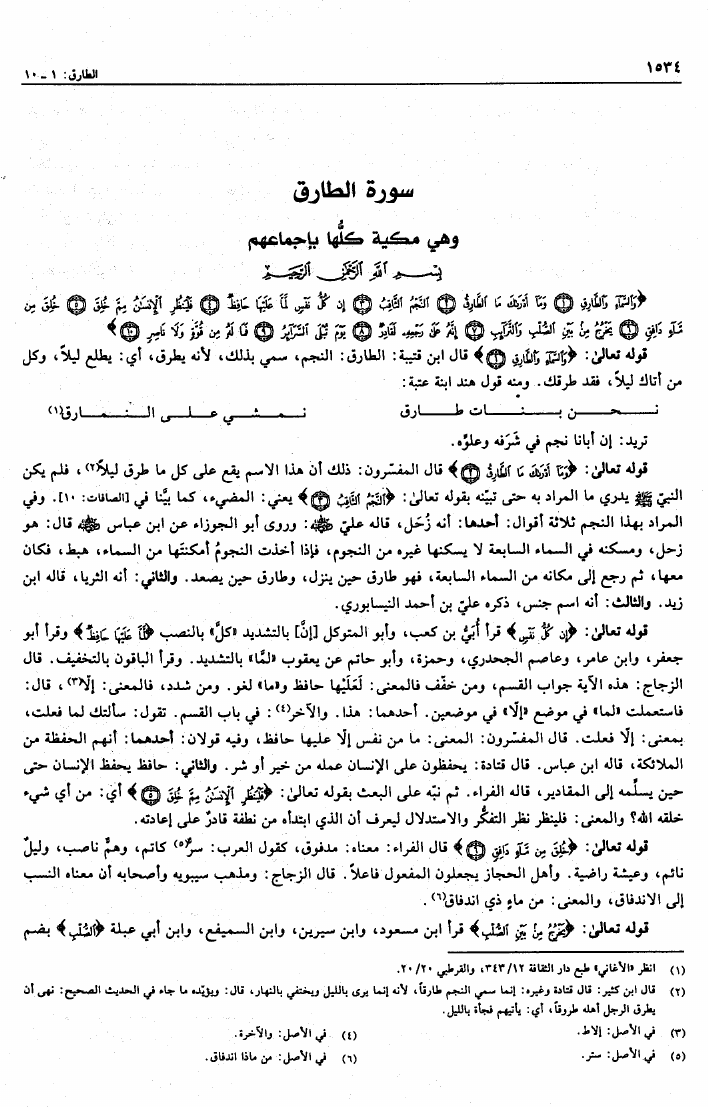 ١٥٣٤
الطارق: ١ - ١٠
سورة الطارق
وهي مكية كلُّها بإجماعهم
بِسْمِ اللَّهِ الرَّحْمَٰنِ الرَّحِيمِ
﴿وَالسَّمَاءِ وَالطَّارِقِ ﴿١﴾ وَمَا أَدْرَاكَ مَا الطَّارِقُ ﴿٢﴾ النَّجْمُ الثَّاقِبُ ﴿٣﴾ إِن كُلُّ نَفْسٍ لَّمَّا عَلَيْهَا حَافِظٌ ﴿٤﴾ فَلْيَنظُرِ الْإِنسَانُ مِمَّ خُلِقَ ﴿٥﴾ خُلِقَ مِن
مَّاءٍ دَافِقٍ ﴿٦﴾ يَخْرُجُ مِن بَيْنِ الصُّلْبِ وَالتَّرَائِبِ ﴿٧﴾ إِنَّهُ عَلَىٰ رَجْعِهِ لَقَادِرٌ ﴿٨﴾ يَوْمَ تُبْلَى السَّرَائِرُ ﴿٩﴾ فَمَا لَهُ مِن قُوَّةٍ وَلَا نَاصِرٍ ﴿١٠﴾﴾
قوله تعالىٰ: ﴿وَالسَّمَاءِ وَالطَّارِقِ ﴿١﴾﴾ قال ابن قتيبة: الطارق: النجم، سمي بذلك، لأنه يطرق، أي: يطلع ليلاً، وكل
من أتاك ليلاً، فقد طرقك. ومنه قول هند ابنة عتبة:
نـحـن بـنـات طـارق نـمـشي عـلـى الـنـمـارق(١)
تريد: إن أبانا نجم في شَرَفه وعلوِّه.
قوله تعالىٰ: ﴿وَمَا أَدْرَاكَ مَا الطَّارِقُ ﴿٢﴾﴾ قال المفسّرون: ذلك أن هذا الاسم يقع على كل ما طرق ليلاً(٢)، فلم يكن
النبيّ ﷺ يدري ما المراد به حتى تبيّنه بقوله تعالىٰ: ﴿النَّجْمُ الثَّاقِبُ ﴿٣﴾﴾ يعني: المضيء، كما بيَّنا في [الصافات: ١٠]. وفي
المراد بهذا النجم ثلاثة أقوال: أحدها: أنه زُحَل، قاله عليّ رضي الله عنه: وروى أبو الجوزاء عن ابن عباس رضي الله عنه قال: هو
زحل، ومسكنه في السماء السابعة لا يسكنها غيره من النجوم، فإذا أخذت النجومُ أمكنتَها من السماء، هبط، فكان
معها، ثم رجع إلى مكانه من السماء السابعة، فهو طارق حين ينزل، وطارق حين يصعد. والثاني: أنه الثريا، قاله ابن
زيد. والثالث: أنه اسم جنس، ذكره عليّ بن أحمد النيسابوري.
قوله تعالىٰ: ﴿إِن كُلُّ نَفْسٍ﴾ قرأ أُبَيُّ بن كعب، وأبو المتوكل [إنَّ] بالتشديد «كلَّ» بالنصب ﴿لَّمَّا عَلَيْهَا حَافِظٌ﴾ وقرأ أبو
جعفر، وابن عامر، وعاصم الجحدري، وحمزة، وأبو حاتم عن يعقوب «لمَّا» بالتشديد. وقرأ الباقون بالتخفيف. قال
الزجاج: هذه الآية جواب القسم، ومن خفّف فالمعنى: لَعَلَيْها حافظ و«ما» لغو. ومن شدد، فالمعنى: إلّا(٣)، قال:
فاستعملت «لما» في موضع «إلّا» في موضعين. أحدهما: هذا. والآخر(٤): في باب القسم. تقول: سألتك لما فعلت،
بمعنى: إلّا فعلت. قال المفسّرون: المعنى: ما من نفس إلّا عليها حافظ، وفيه قولان: أحدهما: أنهم الحفظة من
الملائكة، قاله ابن عباس. قال قتادة: يحفظون على الإنسان عمله من خير أو شر. والثاني: حافظ يحفظ الإنسان حتى
حين يسلّمه إلى المقادير، قاله الفراء. ثم نبَّه على البعث بقوله تعالىٰ: ﴿فَلْيَنظُرِ الْإِنسَانُ مِمَّ خُلِقَ ﴿٥﴾﴾ أي: من أي شيء
خلقه الله؟ والمعنى: فلينظر نظر التفكُّر والاستدلال ليعرف أن الذي ابتدأه من نطفة قادرٌ على إعادته.
قوله تعالىٰ: ﴿خُلِقَ مِن مَّاءٍ دَافِقٍ ﴿٦﴾﴾ قال الفراء: معناه: مدفوق، كقول العرب: سرٌّ(٥) كاتم، وهمٌّ ناصب، وليلٌ
نائم، وعيشة راضية. وأهل الحجاز يجعلون المفعول فاعلاً. قال الزجاج: ومذهب سيبويه وأصحابه أن معناه النسب
إلى الاندفاق، والمعنى: من ماءٍ ذي اندفاق(٦).
قوله تعالىٰ: ﴿يَخْرُجُ مِن بَيْنِ الصُّلْبِ﴾ قرأ ابن مسعود، وابن سيرين، وابن السميفع، وابن أبي عبلة ﴿الصُّلُبِ﴾ بضم
(١) انظر «الأغاني» طبع دار الثقافة ٣٤٣/١٢، والقرطبي ٢٠/٢٠.
(٢) قال ابن كثير: قال قتادة وغيره: إنما سمي النجم طارقاً، لأنه إنما يرى بالليل ويختفي بالنهار، قال: ويؤيّده ما جاء في الحديث الصحيح: نهى أن
يطرق الرجل أهله طروقاً، أي: يأتيهم فجأة بالليل.
(٣) في الأصل: إلاط. (٤) في الأصل: والآخرة.
(٥) في الأصل: ستر. (٦) في الأصل: من ماذا اندفاق.